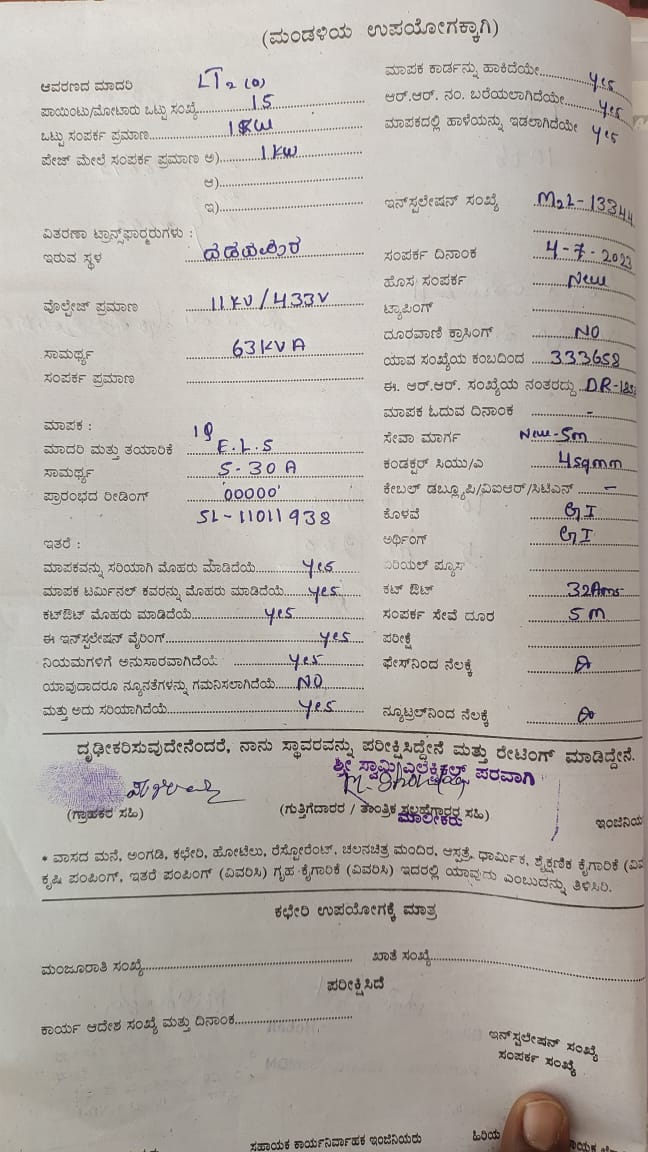 (ಮಂಡಳಿಯ ಉಪಯೋಗಕ್ಕಾಗಿ)
ಆವರಣದ ಮಾದರಿ LT2 (a)
ಪಾಯಿಂಟು/ಮೋಟಾರು ಒಟ್ಟು ಸಂಖ್ಯೆ 15
ಒಟ್ಟು ಸಂಪರ್ಕ ಪ್ರಮಾಣ 1KW
ಪೇಜ್ ಮೇಲೆ ಸಂಪರ್ಕ ಪ್ರಮಾಣ ಅ) 1KW
ಆ)
ಇ)
ವಿತರಣಾ ಟ್ರಾನ್ಸ್‌ಫಾರ್ಮರುಗಳು :
ಇರುವ ಸ್ಥಳ
ವೋಲ್ಟೇಜ್ ಪ್ರಮಾಣ 11KV/433V
ಸಾಮರ್ಥ್ಯ 63KVA
ಸಂಪರ್ಕ ಪ್ರಮಾಣ
ಮಾಪಕ :
ಮಾದರಿ ಮತ್ತು ತಯಾರಿಕೆ E.L.S
ಸಾಮರ್ಥ್ಯ 5-30A
ಪ್ರಾರಂಭದ ರೀಡಿಂಗ್ 00000
SL-11011938
ಇತರೆ :
ಮಾಪಕವನ್ನು ಸರಿಯಾಗಿ ಮೊಹರು ಮಾಡಿದೆಯೆ yes
ಮಾಪಕ ಟರ್ಮಿನಲ್ ಕವರನ್ನು ಮೊಹರು ಮಾಡಿದೆಯೆ yes
ಕಟ್‌ಔಟ್ ಮೊಹರು ಮಾಡಿದೆಯೆ yes
ಈ ಇನ್‌ಸ್ಪಲೇಷನ್ ವೈರಿಂಗ್ yes
ನಿಯಮಗಳಿಗೆ ಅನುಸಾರವಾಗಿದೆಯೆ yes
ಯಾವುದಾದರೂ ನ್ಯೂನತೆಗಳನ್ನು ಗಮನಿಸಲಾಗಿದೆಯೆ NO
ಮತ್ತು ಅದು ಸರಿಯಾಗಿದೆಯೆ yes
ಮಾಪಕ ಕಾರ್ಡನ್ನು ಹಾಕಿದೆಯೇ yes
ಆರ್.ಆರ್. ನಂ. ಬರೆಯಲಾಗಿದೆಯೇ yes
ಮಾಪಕದಲ್ಲಿ ಹಾಳೆಯನ್ನು ಇಡಲಾಗಿದೆಯೇ yes
ಇನ್‌ಸ್ಪಲೇಷನ್ ಸಂಖ್ಯೆ M2L-13344
ಸಂಪರ್ಕ ದಿನಾಂಕ 4-7-2023
ಹೊಸ ಸಂಪರ್ಕ New
ಟ್ಯಾಪಿಂಗ್
ದೂರವಾಣಿ ಕ್ರಾಸಿಂಗ್ NO
ಯಾವ ಸಂಖ್ಯೆಯ ಕಂಬದಿಂದ 333658
ಈ. ಆರ್.ಆರ್. ಸಂಖ್ಯೆಯ ನಂತರದ್ದು
ಮಾಪಕ ಓದುವ ದಿನಾಂಕ -
ಸೇವಾ ಮಾರ್ಗ New-5m
ಕಂಡಕ್ಟರ್ ಸಿಯು/ಎ 4sqmm
ಕೇಬಲ್ ಡಬ್ಲ್ಯೂಪಿ/ವಿಐಆರ್/ಸಿಟಿಎನ್ -
ಕೊಳವೆ GI
ಅರ್ಥಿಂಗ್ GI
ಏರಿಯಲ್ ಪ್ಯೂಸ್
ಕಟ್ ಔಟ್ 32Ams
ಸಂಪರ್ಕ ಸೇವೆ ದೂರ 5M
ಪರೀಕ್ಷೆ
ಫೇಸ್‌ನಿಂದ ನೆಲಕ್ಕೆ
ನ್ಯೂಟ್ರಲ್‌ನಿಂದ ನೆಲಕ್ಕೆ
ದೃಢೀಕರಿಸುವುದೇನೆಂದರೆ, ನಾನು ಸ್ಥಾವರವನ್ನು ಪರೀಕ್ಷಿಸಿದ್ದೇನೆ ಮತ್ತು ರೇಟಿಂಗ್ ಮಾಡಿದ್ದೇನೆ.
ಶ್ರೀ ಸ್ವಾಮಿ ಎಲೆಕ್ಟ್ರಿಕಲ್ಸ್ ಪರವಾಗಿ
(ಗ್ರಾಹಕರ ಸಹಿ) (ಗುತ್ತಿಗೆದಾರರ / ತಾಂತ್ರಿಕ ಸಲಹೆಗಾರರ ಸಹಿ) ಇಂಜಿನಿಯ
ಮಾಲೀಕರು
• ವಾಸದ ಮನೆ, ಅಂಗಡಿ, ಕಛೇರಿ, ಹೋಟೆಲು, ರೆಸ್ಟೋರೆಂಟ್, ಚಲನಚಿತ್ರ ಮಂದಿರ, ಆಸ್ಪತ್ರೆ, ಧಾರ್ಮಿಕ, ಶೈಕ್ಷಣಿಕ ಕೈಗಾರಿಕೆ (ವಿವ
ಕೃಷಿ ಪಂಪಿಂಗ್, ಇತರೆ ಪಂಪಿಂಗ್ (ವಿವರಿಸಿ) ಗೃಹ ಕೈಗಾರಿಕೆ (ವಿವರಿಸಿ) ಇದರಲ್ಲಿ ಯಾವುದು ಎಂಬುದನ್ನು ತಿಳಿಸಿರಿ.
ಕಛೇರಿ ಉಪಯೋಗಕ್ಕೆ ಮಾತ್ರ
ಮಂಜೂರಾತಿ ಸಂಖ್ಯೆ ಖಾತೆ ಸಂಖ್ಯೆ
ಪರೀಕ್ಷಿಸಿದೆ
ಕಾರ್ಯ ಆದೇಶ ಸಂಖ್ಯೆ ಮತ್ತು ದಿನಾಂಕ
ಇನ್‌ಸ್ಪಲೇಷನ್ ಸಂಖ್ಯೆ
ಸಂಪರ್ಕ ಸಂಖ್ಯೆ
ಸಹಾಯಕ ಕಾರ್ಯನಿರ್ವಾಹಕ ಇಂಜಿನಿಯರು ಹಿರಿಯ